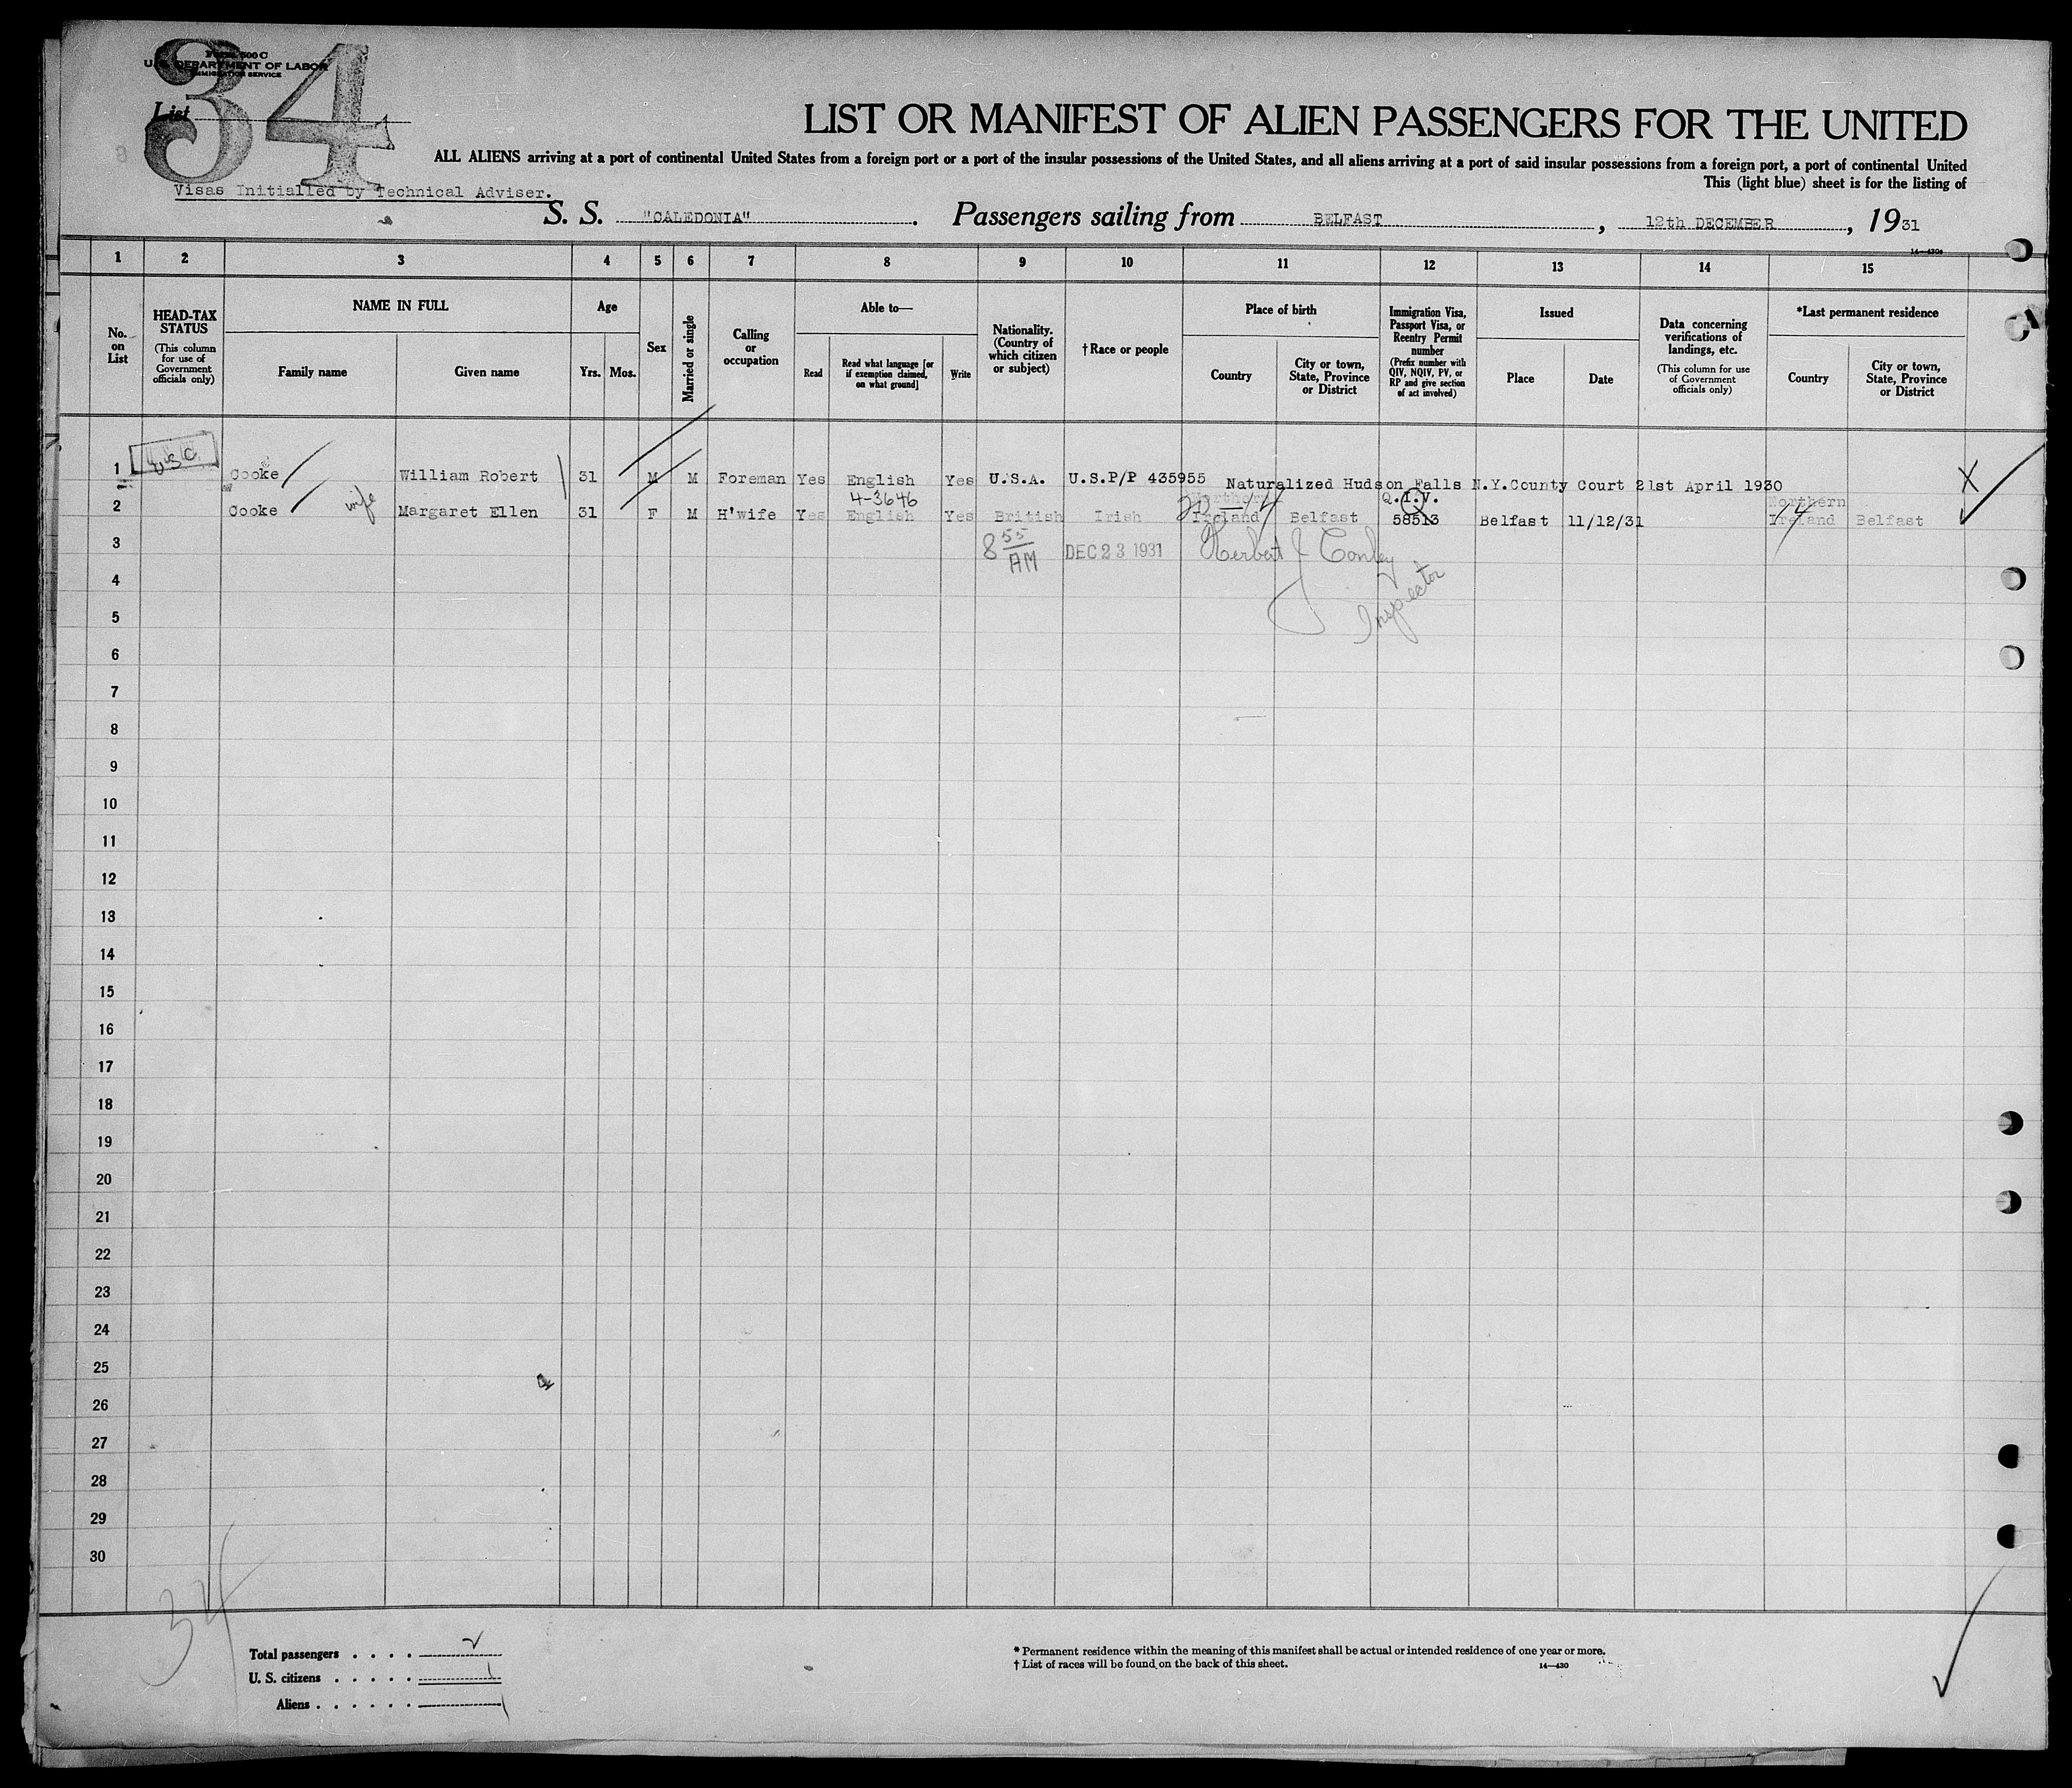 34
Form 500 C
U. S. DEPARTMENT OF LABOR
IMMIGRATION SERVICE
List
LIST OR MANIFEST OF ALIEN PASSENGERS FOR THE UNITED
ALL ALIENS arriving at a port of continental United States from a foreign port or a port of the insular possessions of the United States, and all aliens arriving at a port of said insular possessions from a foreign port, a port of continental United
This (light blue) sheet is for the listing of
Visas Initialled by Technical Adviser.
S. S. "CALEDONIA". Passengers sailing from BELFAST, 12th DECEMBER, 1931
14—430a
1 2 3 4 5 6 7 8 9 10 11 12 13 14 15
No. on List
HEAD-TAX STATUS
(This column for use of Government officials only)
NAME IN FULL
Family name
Given name
Age
Yrs. Mos.
Sex
Married or single
Calling or occupation
Able to—
Read
Read what language [or if exemption claimed, on what ground]
Write
Nationality. (Country of which citizen or subject)
†Race or people
Place of birth
Country
City or town, State, Province or District
Immigration Visa, Passport Visa, or Reentry Permit number
(Prefix number with QIV, NQIV, PV, or RP and give section of act involved)
Issued
Place
Date
Data concerning verifications of landings, etc.
(This column for use of Government officials only)
*Last permanent residence
Country
City or town, State, Province or District
1 USC Cooke William Robert 31 M M Foreman Yes English Yes U.S.A. U.S.P/P 435955 Naturalized Hudson Falls N.Y.County Court 21st April 1930 X
4-3646 Northern Q.I.V. Northern
2 Cooke wife Margaret Ellen 31 F M H'wife Yes English Yes British Irish Ireland Belfast 58513 Belfast 11/12/31 Ireland Belfast
3 8 55 AM DEC 23 1931 Herbert J Conley
4 Inspector
5
6
7
8
9
10
11
12
13
14
15
16
17
18
19
20
21
22
23
24
25
26
27
28
29
30
34
Total passengers . . . . 2
U. S. citizens . . . . . 1
Aliens . . . . . . 1
* Permanent residence within the meaning of this manifest shall be actual or intended residence of one year or more.
† List of races will be found on the back of this sheet.
14—430